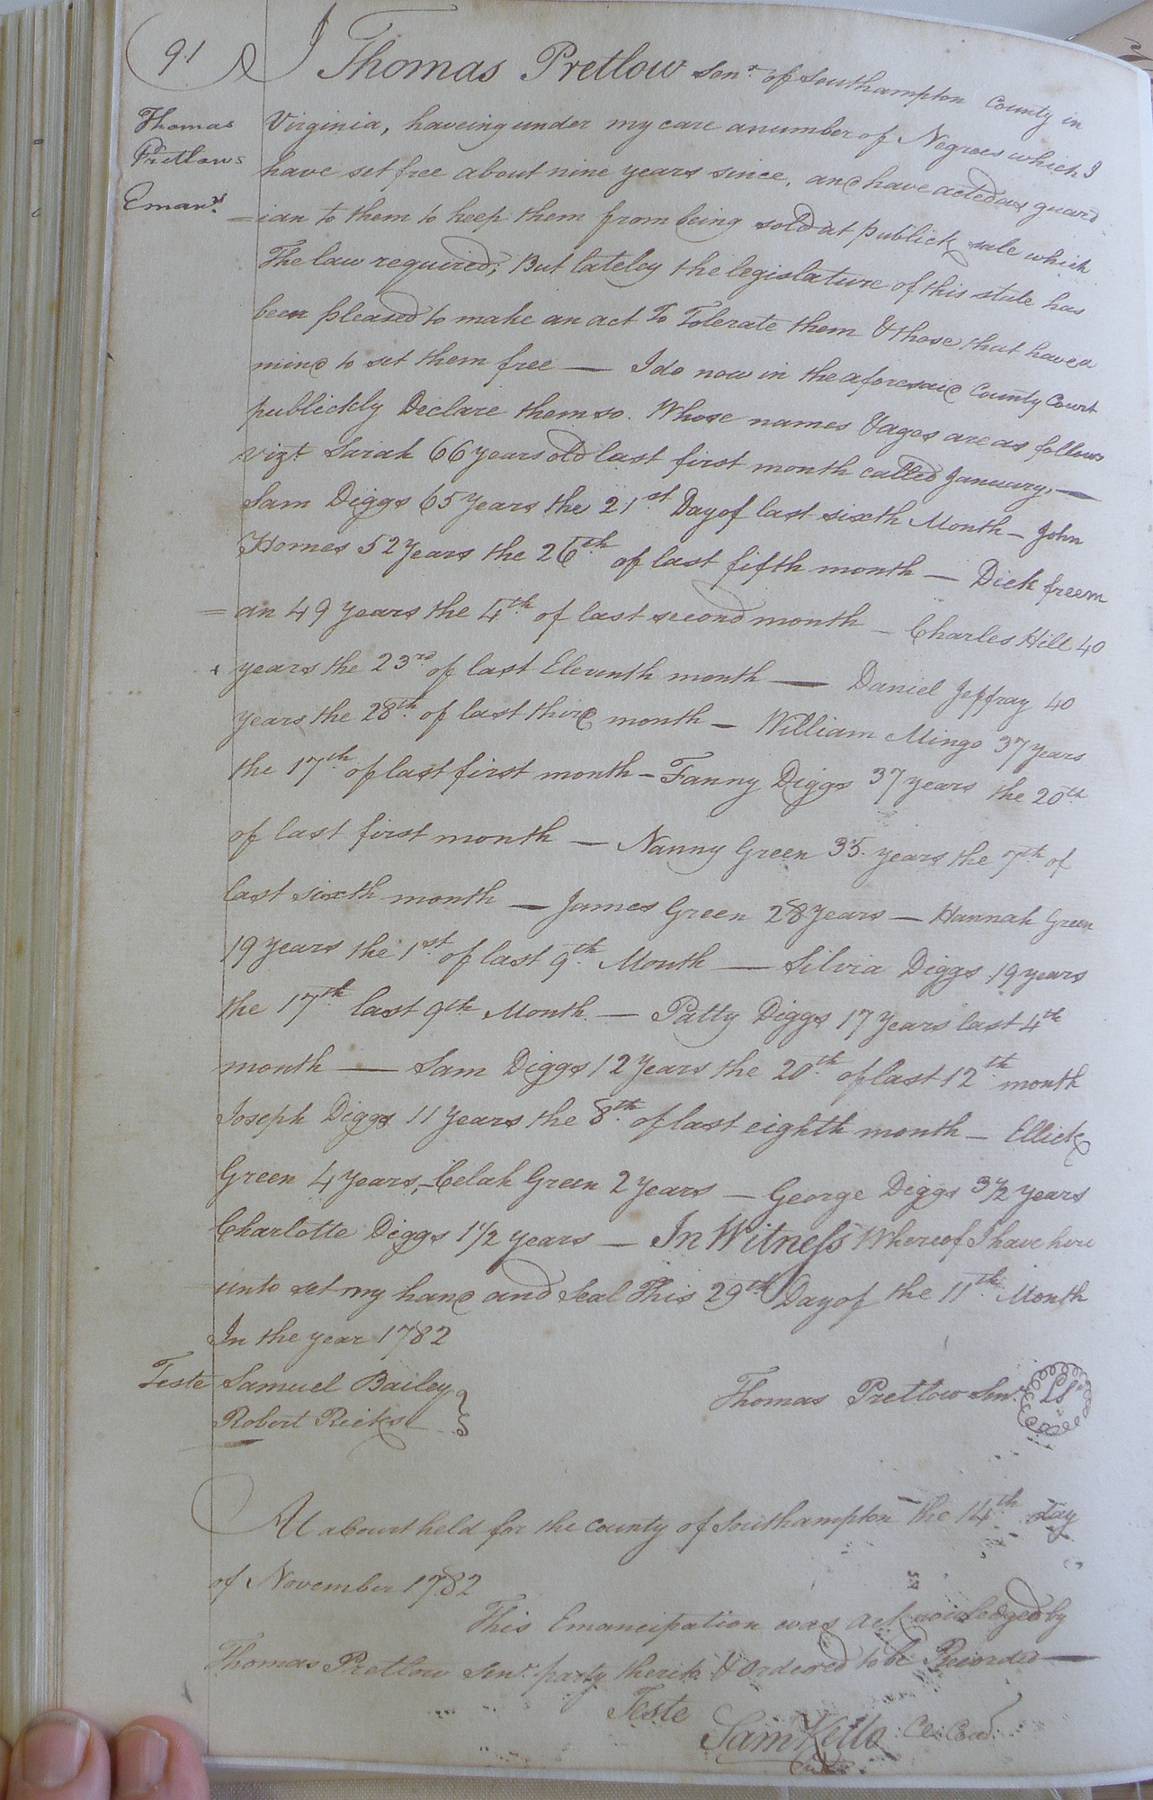 91
Thomas
Pretlows
Eman.n
I Thomas Pretlow Sen.r of Southampton County in
Virginia, haveing under my care a number of Negroes which I
have set free about nine years since, and have acted as guard
=ian to them to keep them from being sold at publick sale which
The law required; But lateley the legislature of this state has
been pleased to make an act To Tolerate them & those that have a
mind to set them free — I do now in the aforesaid County Court
publickly Declare them so. Whose names & ages are as follows
vizt Sarah 66 years old last first month called January, —
Sam Diggs 65 Years the 21st Day of last sixth Month — John
Homes 52 Years the 26th of last fifth month — Dick freem
=an 49 years the 4th of last second month — Charles Hill 40
years the 23rd of last Eleventh month — Daniel Jeffray 40
years the 28th of last third month — William Mingo 37 years
the 17th of last first month — Fanny Diggs 37 years the 20th
of last first month — Nanny Green 35 years the 7th of
last sixth month — James Green 28 Years — Hannah Green
19 years the 1st of last 9th Month — Silvia Diggs 19 years
the 17th last 9th Month — Patty Diggs 17 Years last 4th
month — Sam Diggs 12 Years the 20th of last 12th month
Joseph Diggs 11 Years the 8th of last eighth month — Ellick
Green 4 years, — Celah Green 2 years — George Diggs 3 1/2 years
Charlotte Diggs 1 1/2 years — In Witness Whereof I have here
unto set my hand and Seal This 29th Day of the 11th Month
In the year 1782
Teste Samuel Bailey
Robert Ricks
Thomas Pretlow Senr. LS
At a Court held for the County of Southampton the 14th day
of November 1782
This Emancipation was acknowledged by
Thomas Pretlow Senr. party thereto & Ordered to be Recorded —
Teste
Sam Kello